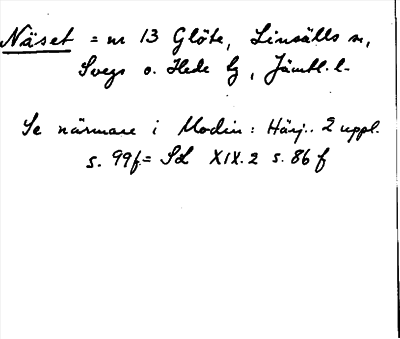 Näset = nr 13 Glöte, Linsälls sn,
Svegs o. Hede tg, Jämtl. l.
Se närmare i Modin: Härj.. 2 uppl.
s. 99f = Sd XIX.2 s. 86 f